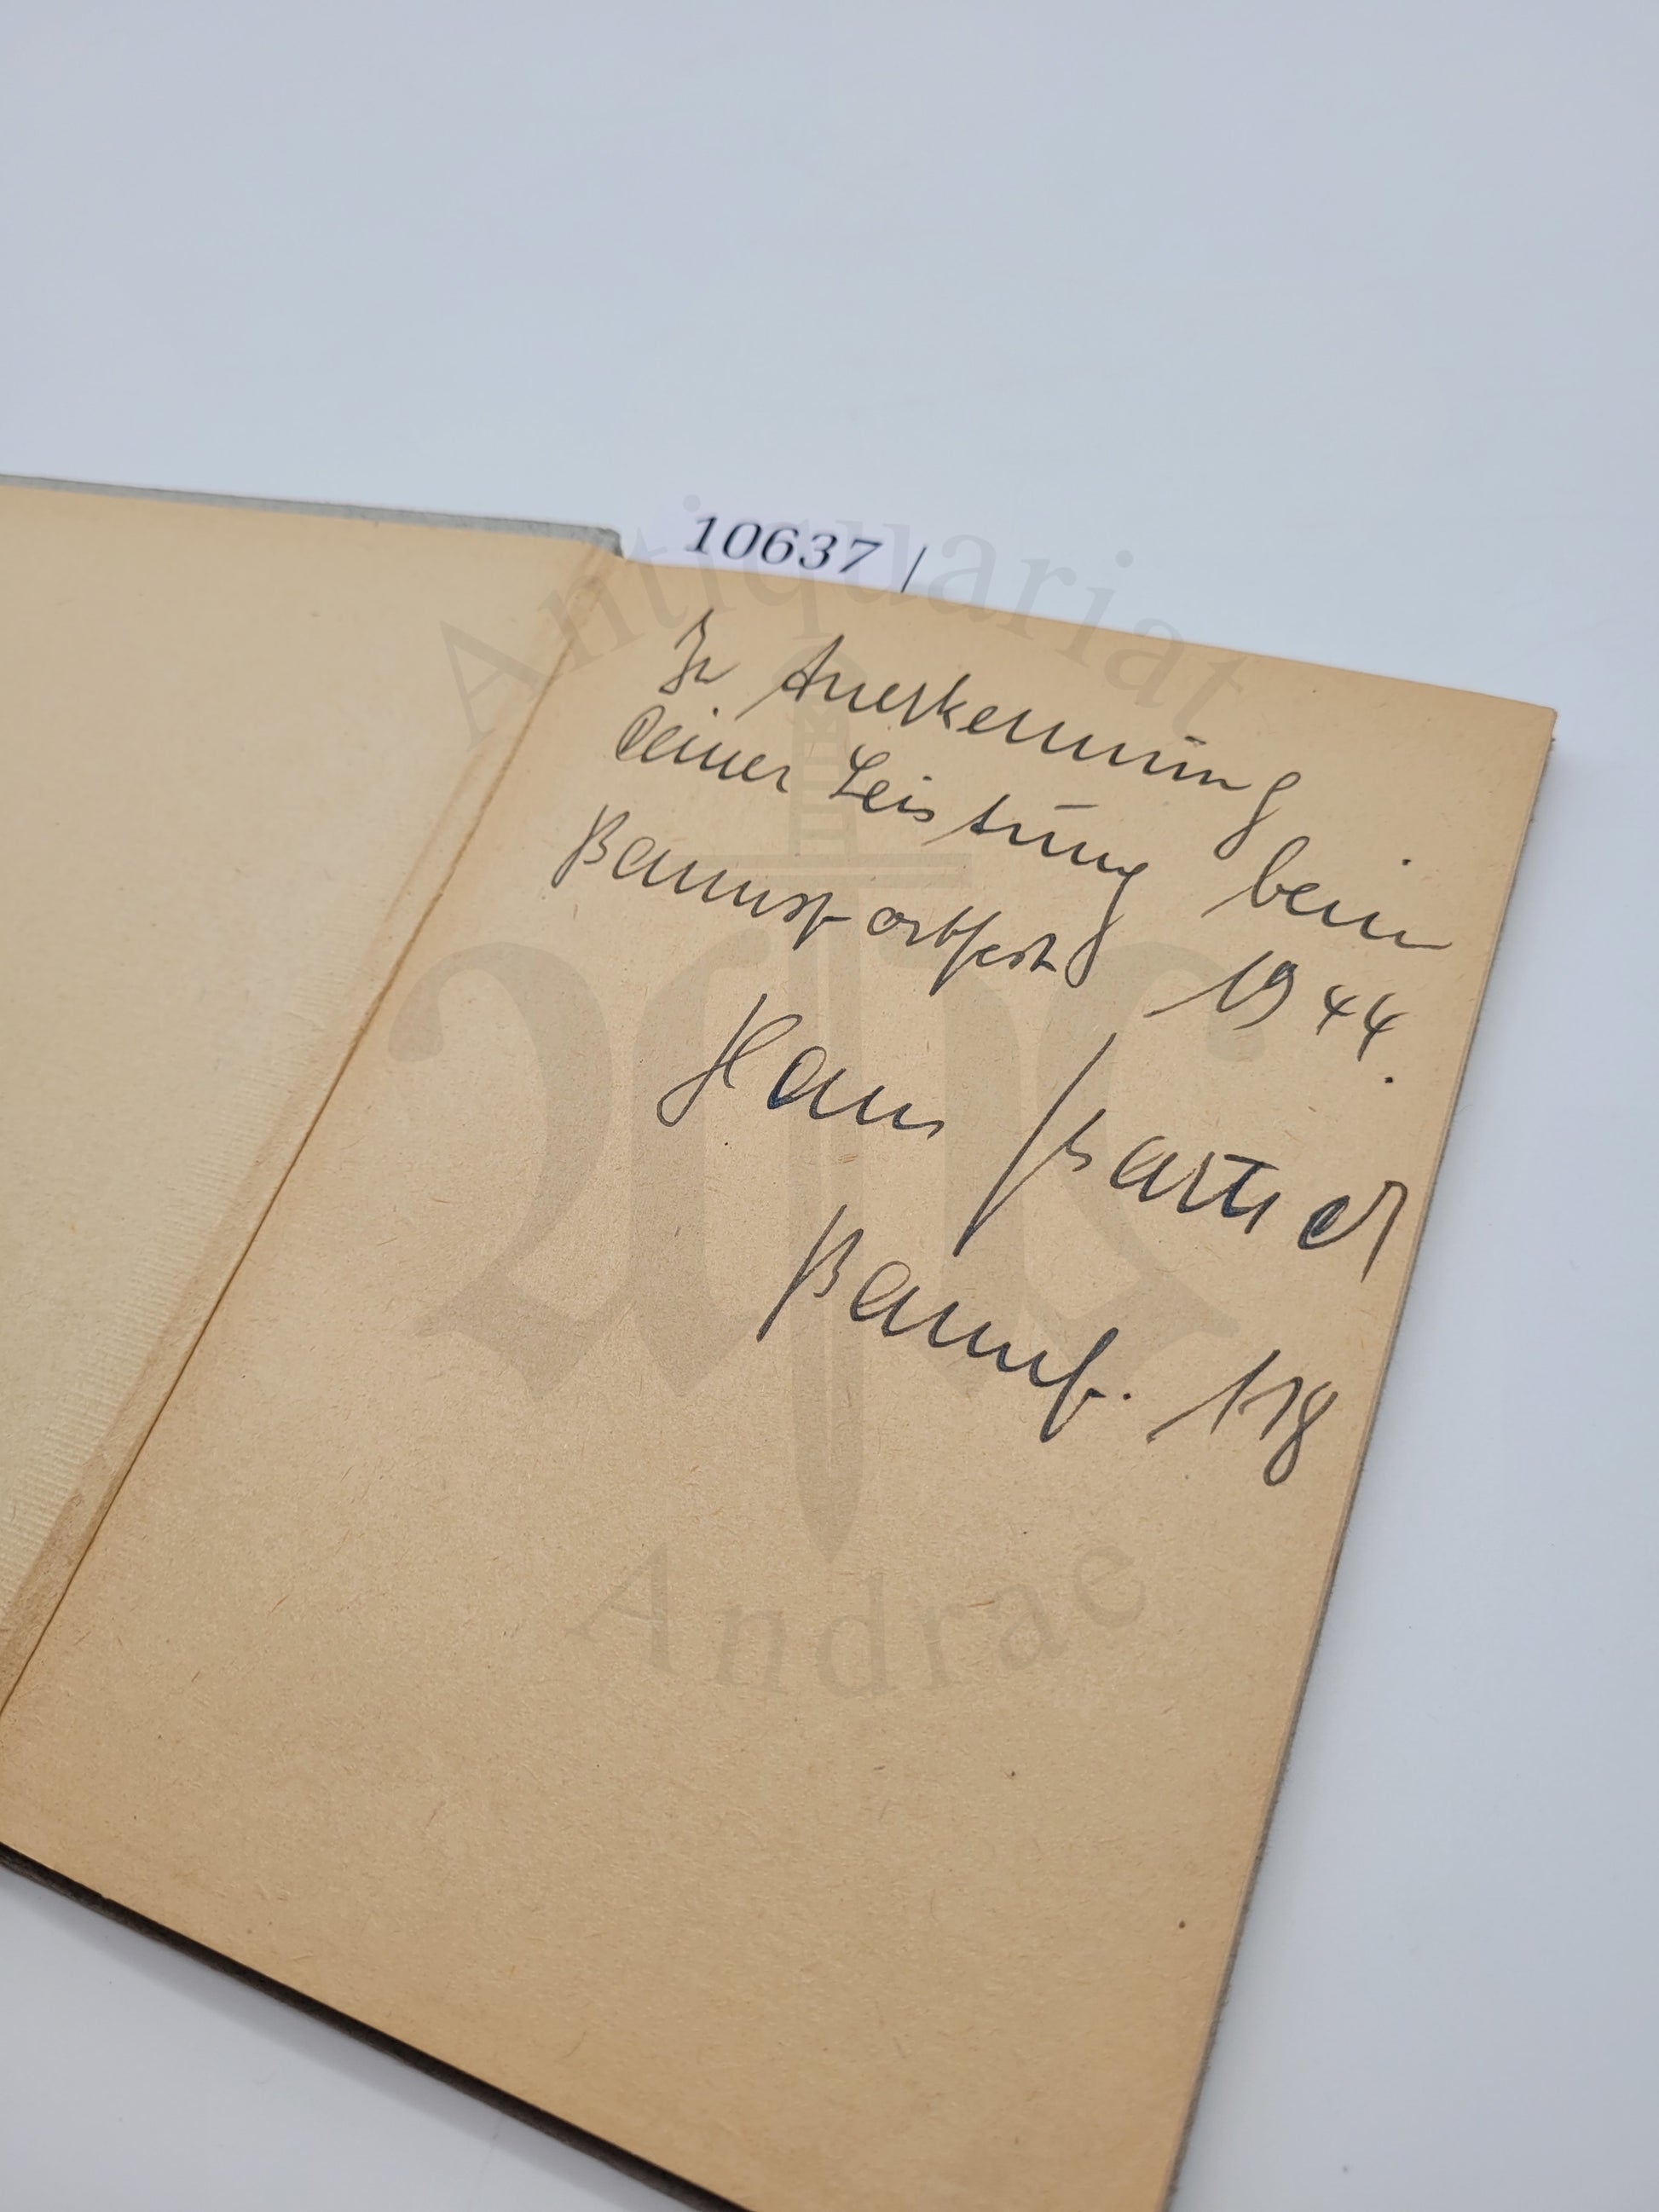 10637 /
Antiquariat
In Anerkennung
Deiner Leistung beim
Bannsportfest 1944.
Hans
Bannf.
Andrae